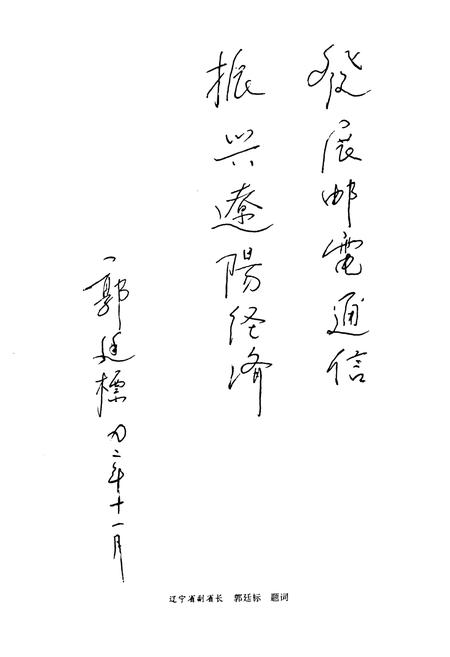 發展邮電通信
振兴遼陽经济
郭廷標 九二年十一月
辽宁省副省长 郭廷标 题词